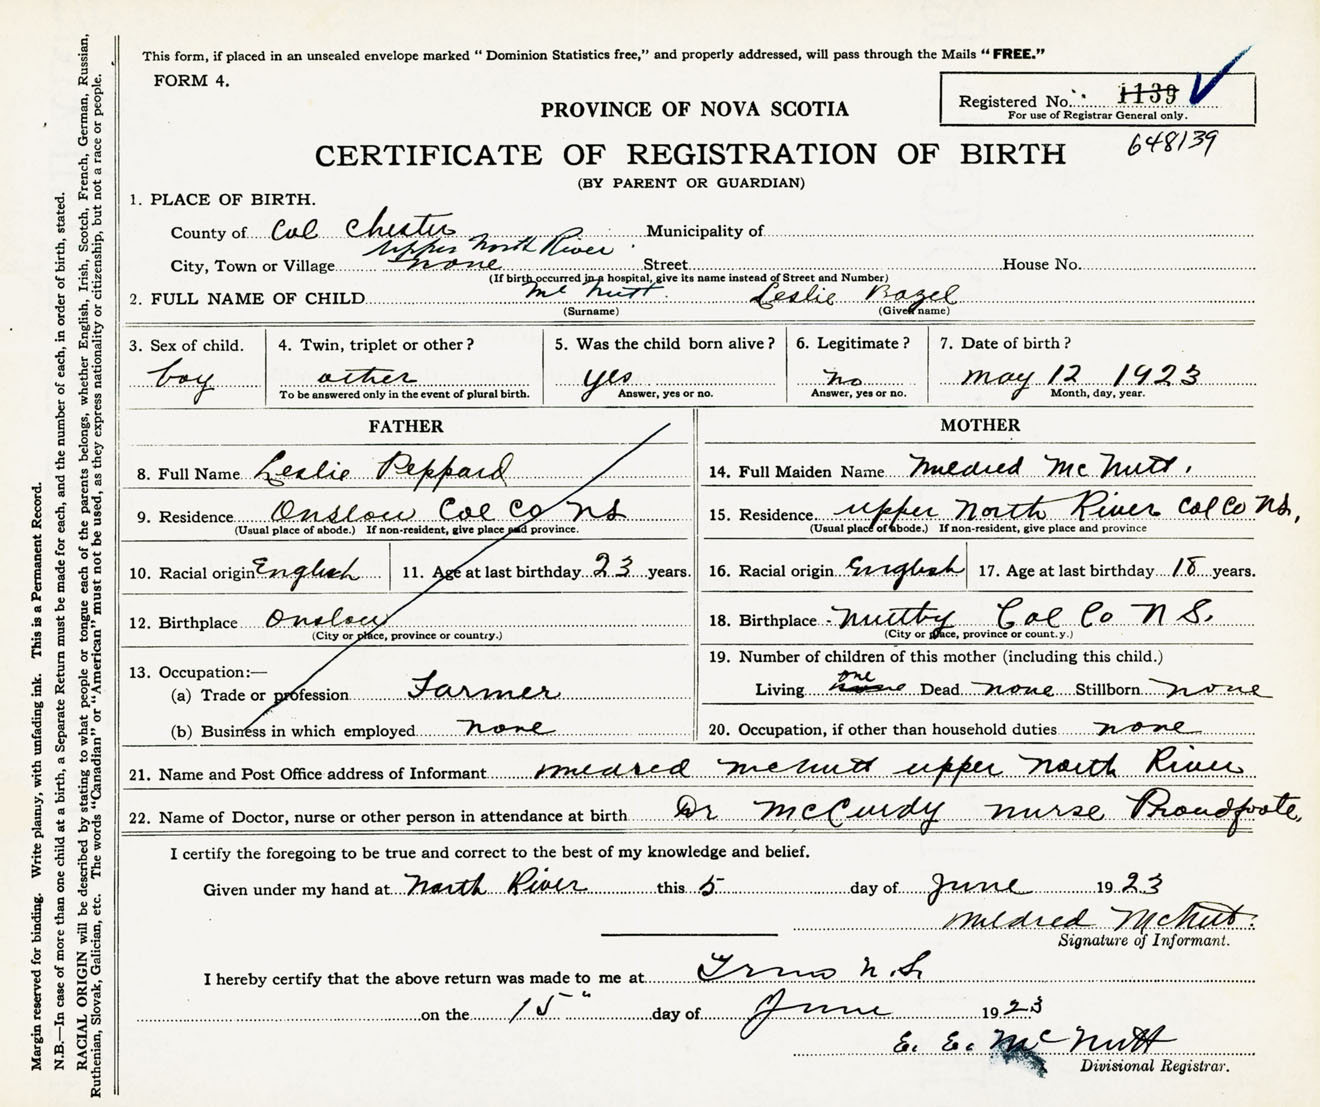 This form, if placed in an unsealed envelope marked “ Dominion Statistics free,” and properly addressed, will pass through the Mails “ FREE.”
FORM 4.
Registered No. 1139
For use of Registrar General only.
648139
PROVINCE OF NOVA SCOTIA
CERTIFICATE OF REGISTRATION OF BIRTH
(BY PARENT OR GUARDIAN)
1. PLACE OF BIRTH.
County of Col Chester Municipality of
upper North River
City, Town or Village none Street House No.
(If birth occurred in a hospital, give its name instead of Street and Number)
2. FULL NAME OF CHILD Mc Nutt. Leslie Bazel
(Surname) (Given name)
3. Sex of child. 4. Twin, triplet or other? 5. Was the child born alive? 6. Legitimate? 7. Date of birth?
boy other yes no may 12 1923
To be answered only in the event of plural birth. Answer, yes or no. Answer, yes or no. Month, day, year.
FATHER MOTHER
8. Full Name Leslie Peppard
9. Residence Onslow Col Co NS
(Usual place of abode.) If non-resident, give place and province.
10. Racial origin English 11. Age at last birthday 23 years.
12. Birthplace Onslow
(City or place, province or country.)
13. Occupation:—
(a) Trade or profession Farmer
(b) Business in which employed none
14. Full Maiden Name Mildred Mc Nutt.
15. Residence upper North River Col Co NS,
(Usual place of abode.) If non-resident, give place and province
16. Racial origin English 17. Age at last birthday 18 years.
18. Birthplace - Nuttby Col Co N S.
(City or place, province or count.y.)
19. Number of children of this mother (including this child.)
one
Living none Dead none Stillborn none
20. Occupation, if other than household duties none
21. Name and Post Office address of Informant mildred mcnutt upper North River
22. Name of Doctor, nurse or other person in attendance at birth Dr McCurdy nurse Proudfoote,
I certify the foregoing to be true and correct to the best of my knowledge and belief.
Given under my hand at North River this 5 day of June 1923
Mildred McNutt.
Signature of Informant.
I hereby certify that the above return was made to me at Truro N.S.
on the 15" day of June 1923
E. E. McNutt
Divisional Registrar.
Margin reserved for binding. Write plainly, with unfading ink. This is a Permanent Record.
N.B.—In case of more than one child at a birth, a Separate Return must be made for each, and the number of each, in order of birth, stated.
RACIAL ORIGIN will be described by stating to what people or tongue each of the parents belongs, whether English, Irish, Scotch, French, German, Russian,
Ruthenian, Slovak, Galician, etc. The words “Canadian” or “American” must not be used, as they express nationality or citizenship, but not a race or people.